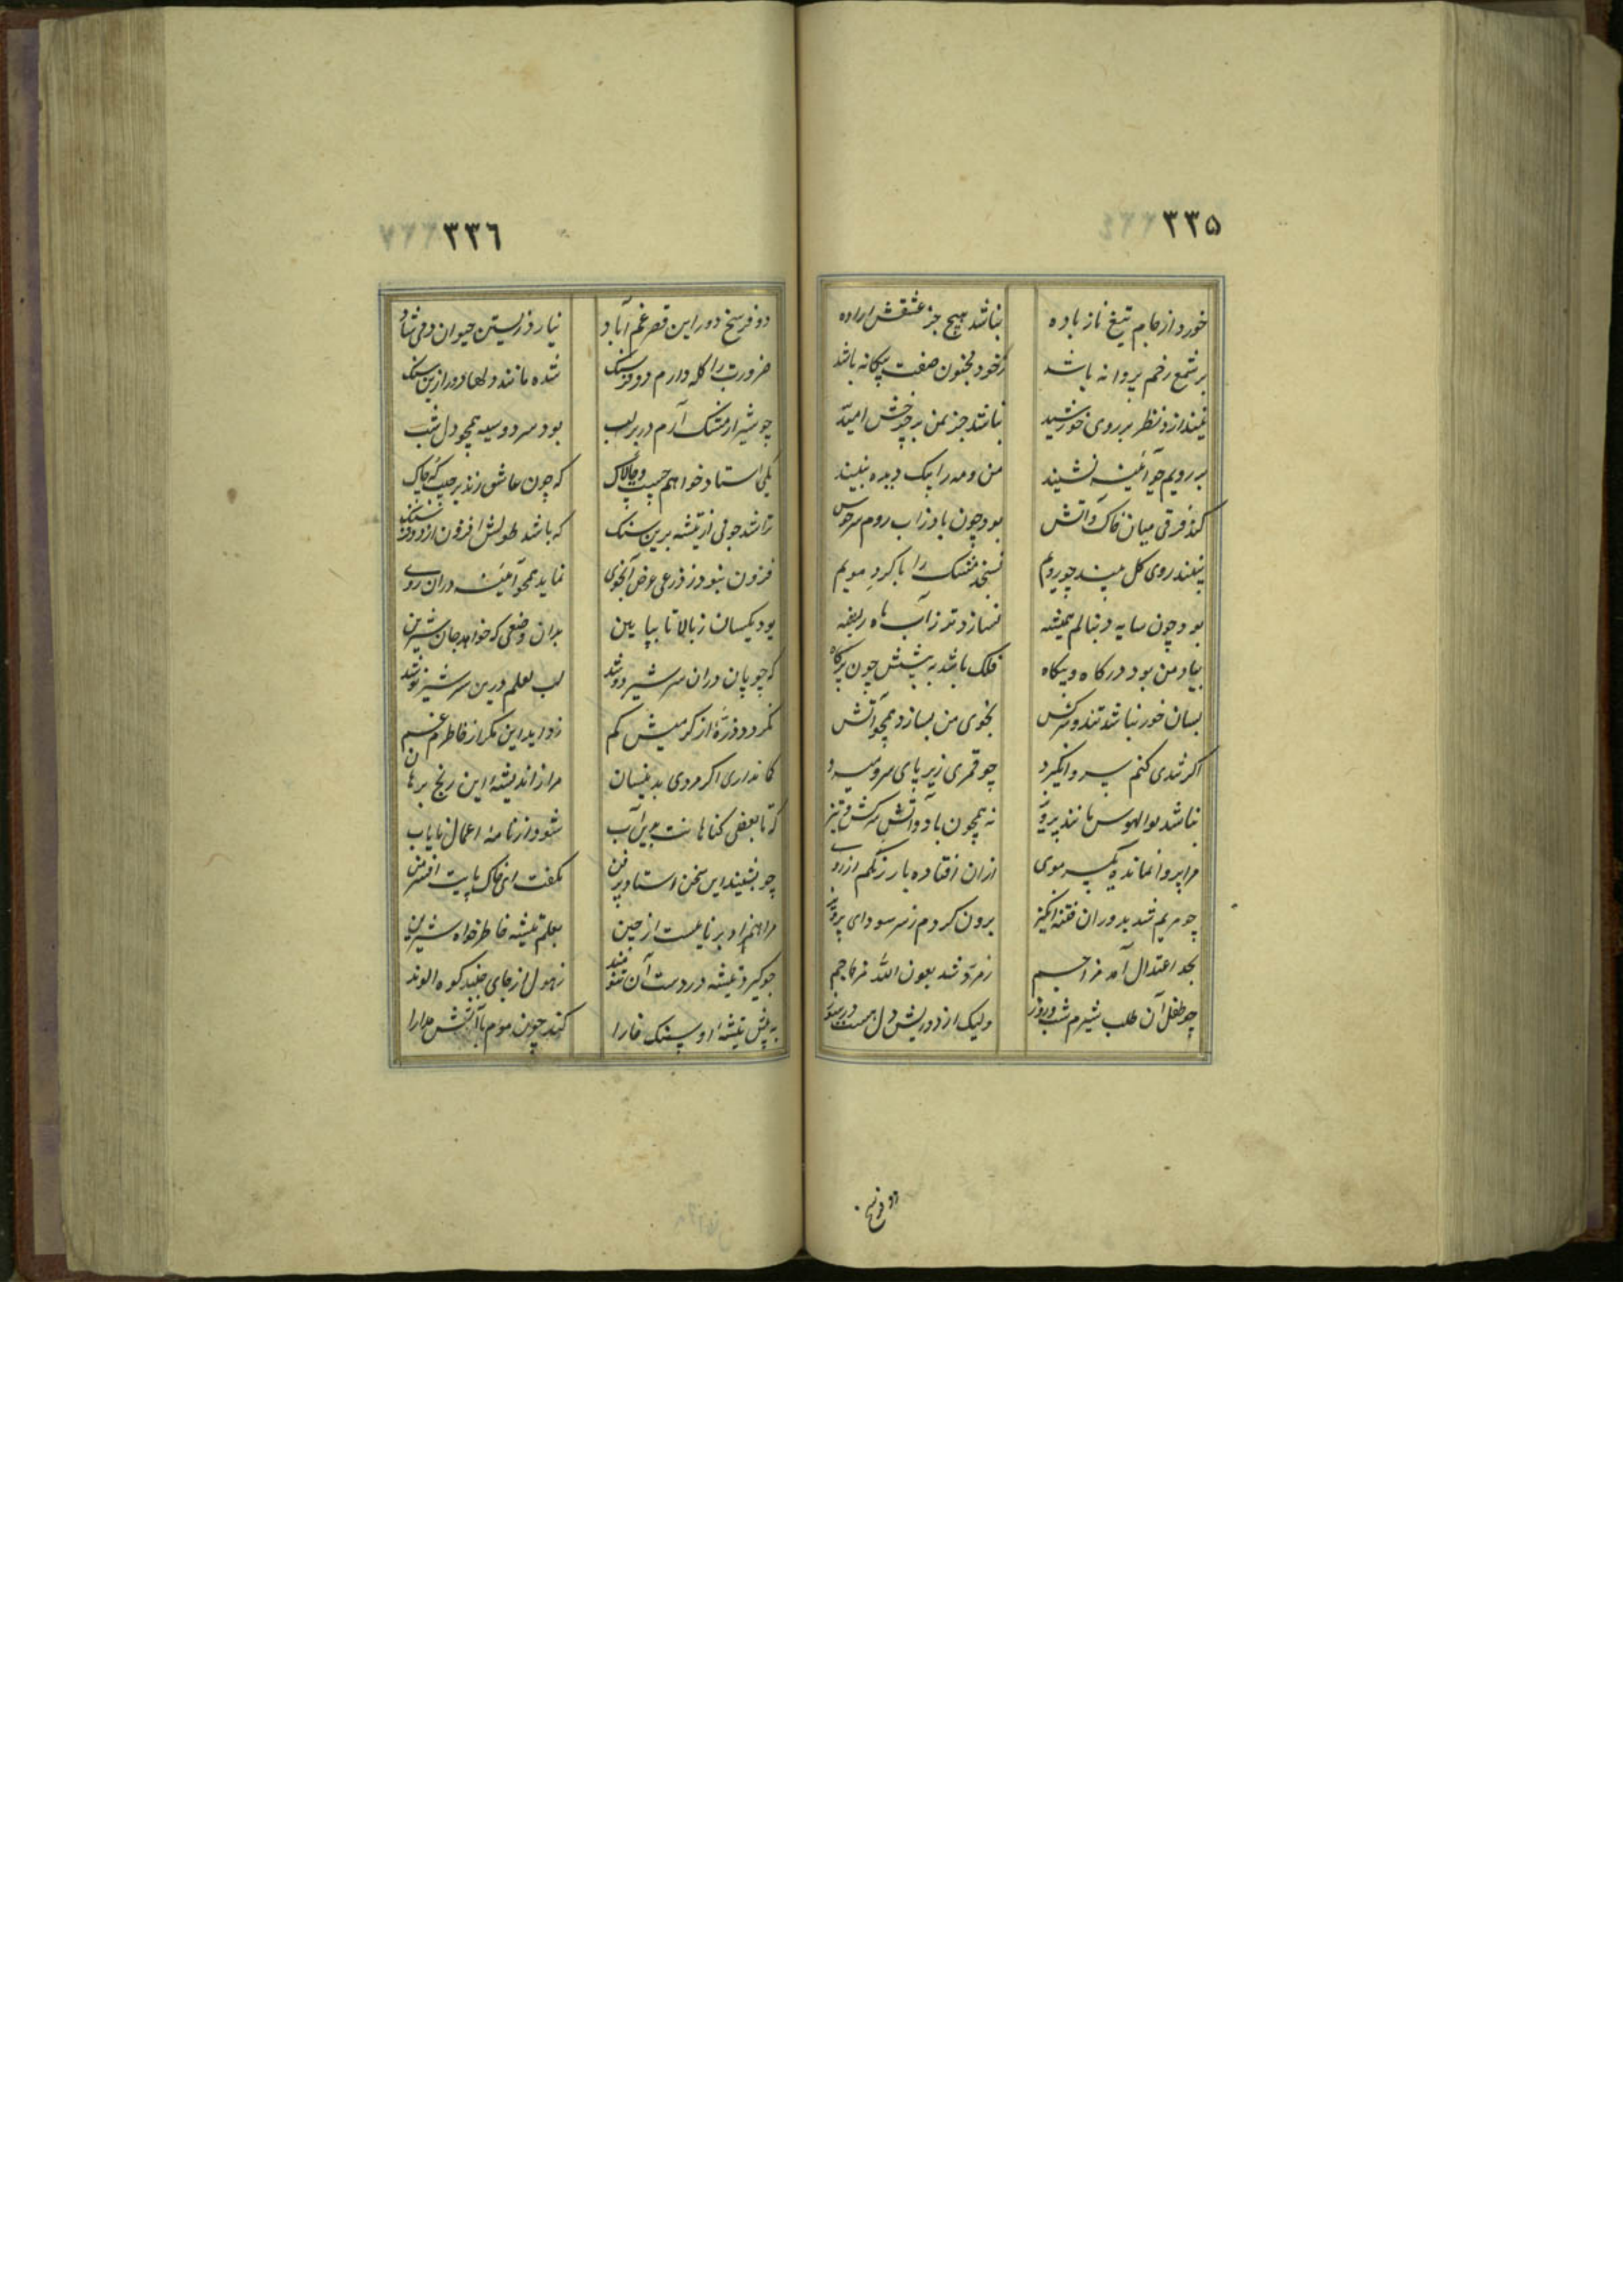 ۳۳۵
خورد از جام تیغ ناز باده نباشد هیچ جز عشقش اراده
بر شمع رخم پروانه باشد ز خود مجنون صفت بیگانه باشد
نیندازد نظر بر روی خورشید نباشد جز بمن برچرخش امید
بر رویم چو آئینه نشیند من و مه را بیک دیده نبیند
کند فرقی میان خاک و آتش بود چون باد زاب روم سرخوش
نبیند روی کل بیند چو رویم نسنجد مشک را با کرد مویم
بود چون سایه دنبالم همیشه نسازد تر ز آب ریشه
بیاد من بود درکاه و بیکاه فلک باشد به پیشش چون پرکاه
بسان خور نباشد تند و سرکش بخوی من بسازد همچو آتش
اکر شدی کنم پسرو انکیرد چو قمری زیر پای سرو میرد
نباشد بوالهوس مانند پرویز نه همچون باد و آتش سرکش و تیز
مرا پروا نمانده یکسر موی ازان افتاده بار زنکم از روی
چو مریم شد بدوران فتنه انکیز برون کردم ز سر سودای پرویز
بحد اعتدال آمد مزاجم زمرد شد بعون الله زجاجم
چو طفل آن طلب شیرم شب و روز ولیک از دوریش دل هست
دو فرسخ
۳۳٦
دو فرسخ دور این قصر غم آباد نیارد زیستن حیوان دمی شاد
ضرورت را کله دارم دو فرسنک شده مانند دلها دور ازین سنک
چو شیر از مشک آرم در بر لب بود سرد و سیه همچو دل شب
یکی استاد خواهم چست و چالاک که چون عاشق زند بر جیب که چاک
تراشد جوئی از تیشه برین سنک که باشد طولش افزون از دو فرسنک
فزون نبود ز ذرعی عرض آنجوی نماید همچو آئینه دران روی
بود یکسان ز بالا تا بپایین بدان وضعی که خواهد جان شیرین
که چوپان دران سر شیر دوشد لب لعلم درین سر شیر نوشد
نکردد ذره از کرمیش کم زداید این مکر از خاطرم غم
کمانداری اکر مردی بدینسان مرا از اندیشه این رنج برهان
که تا بعضی کناهانت برین آب شود از نامه اعمال نایاب
چو بشنید این سخن استاد پر فن بگفت ای خاک پایت افسر من
مرا همزاد برنایست از چین بعلم تیشه خاطرخواه شیرین
چو کیرد تیشه در دست آن تنومند ز هول از جای جنبد کوه الوند
به پیش تیشه او سنک خارا کند چون موم با آتش مدارا